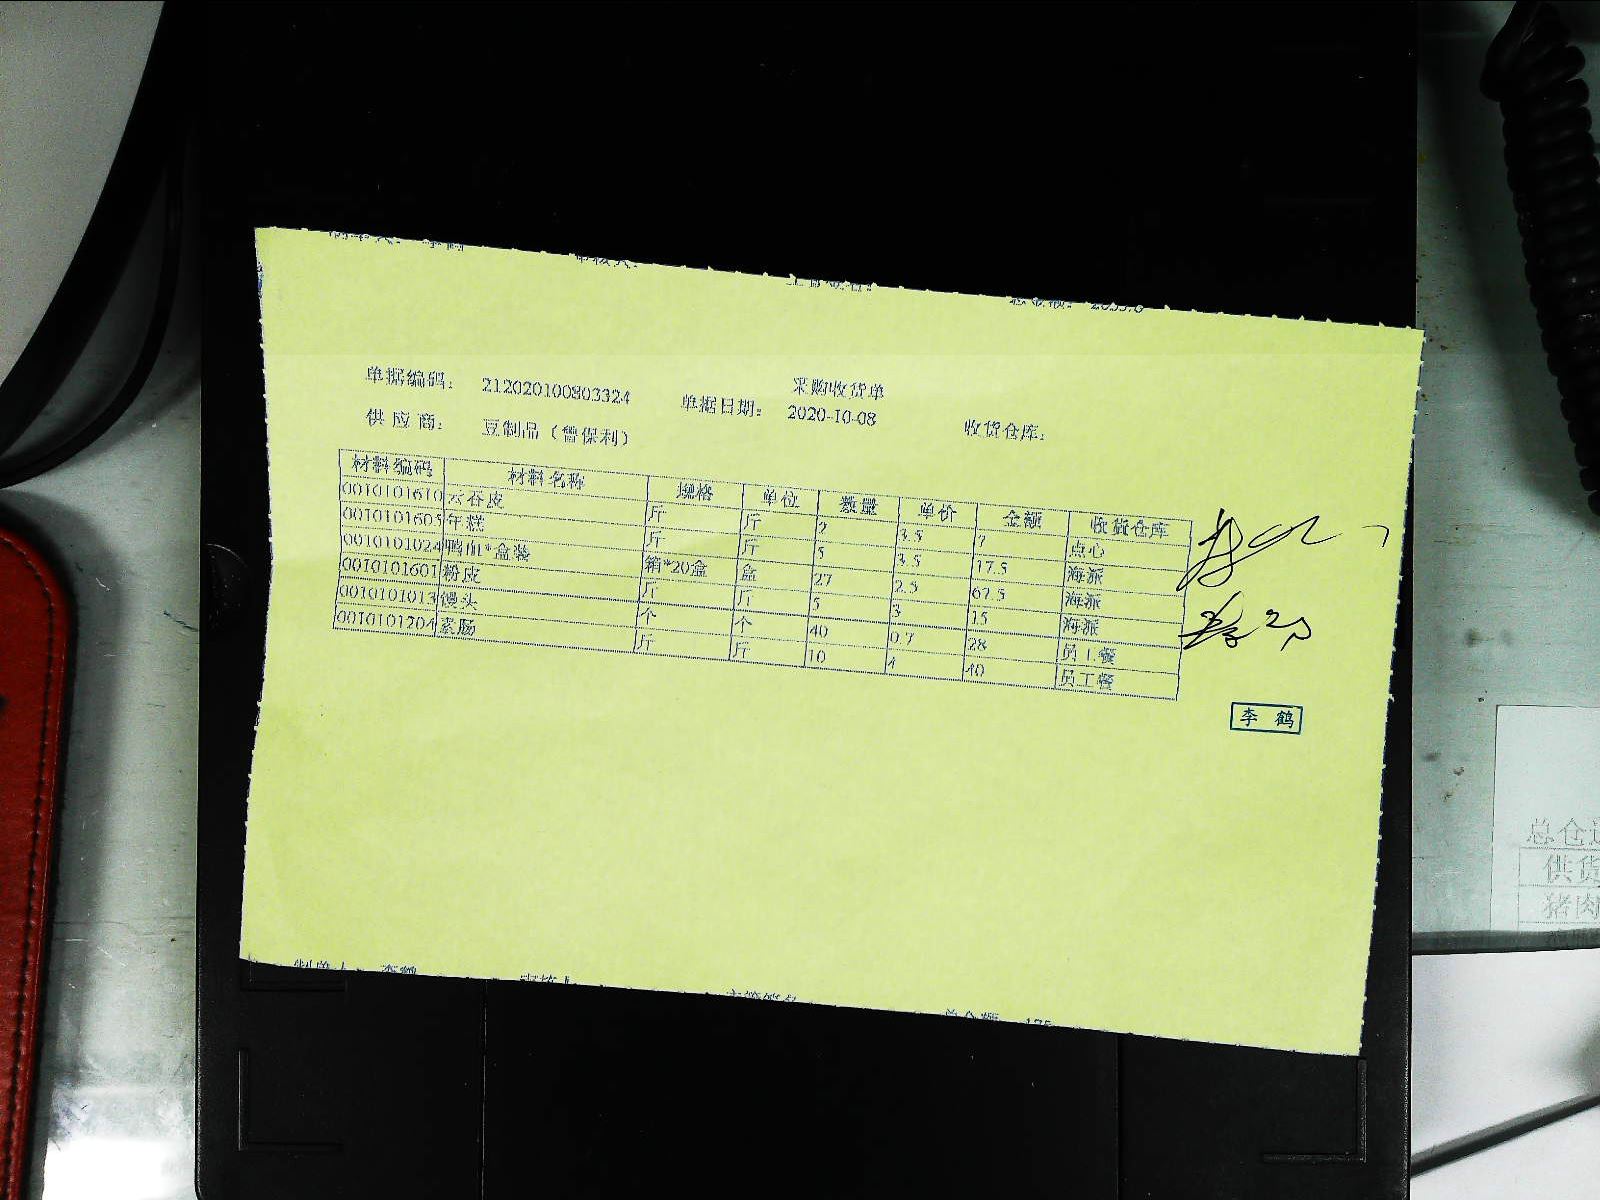 采购收货单
单据编码： 212020100803324 单据日期： 2020-10-08 收货仓库：
供 应 商： 豆制品（曹保利）
材料编码 材料名称 规格 单位 数量 单价 金额 收货仓库
0010101610 云吞皮 斤 斤 2 3.5 7 点心
0010101605 年糕 斤 斤 5 3.5 17.5 海派
0010101024 鸭血*盒装 箱*20盒 盒 27 2.5 67.5 海派
0010101601 粉皮 斤 斤 5 3 15 海派
0010101013 馒头 个 个 40 0.7 28 员工餐
0010101204 素肠 斤 斤 10 4 40 员工餐
李 鹤
制单人： 李鹤
总金额： 175
总仓
供货
猪肉